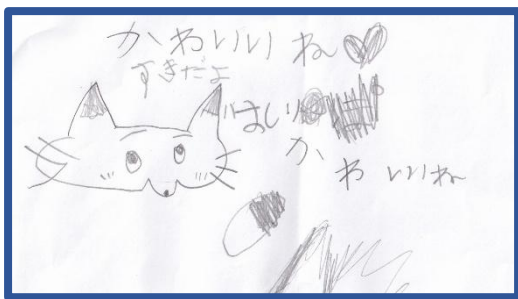 かわいいね
すきだよ
はい
かわいいね